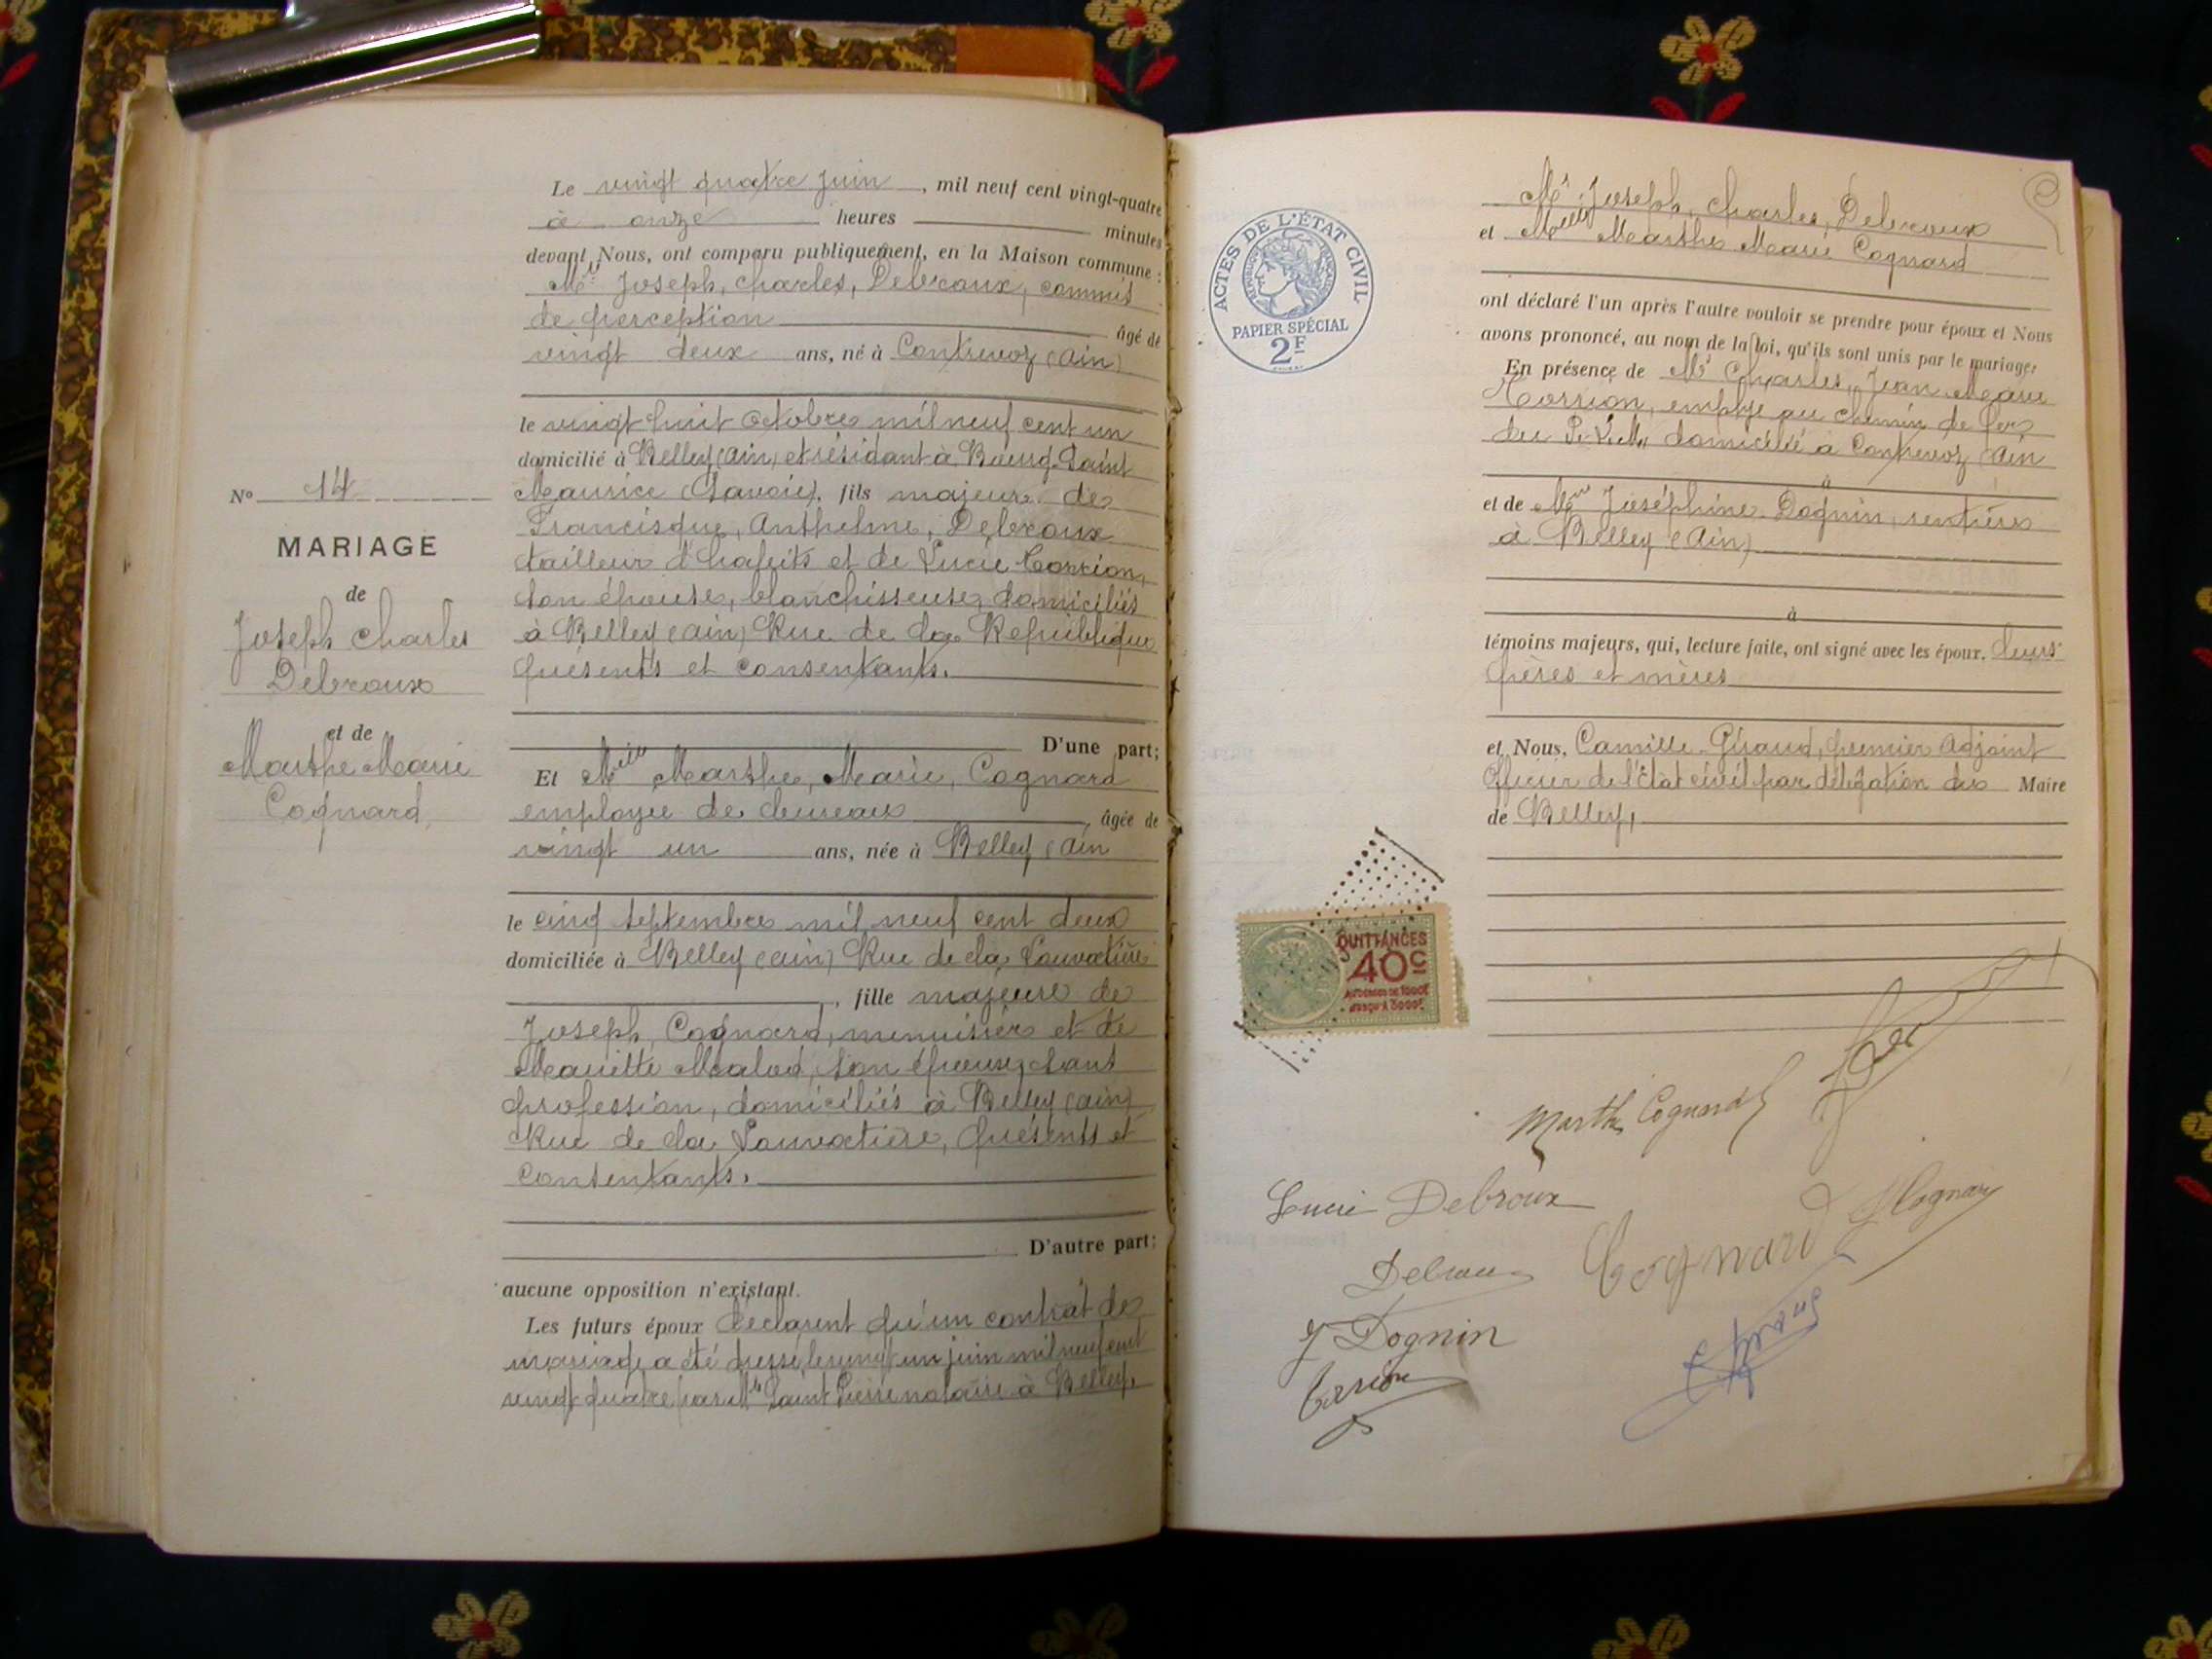 Le vingt quatre juin, mil neuf cent vingt-quatre
à onze heures minutes
devant Nous, ont comparu publiquement, en la Maison commune :
Mr Joseph, Charles, Debroux, commis
de perception âgé de
vingt deux ans, né à Contrevoz (Ain)
le vingt huit Octobre mil neuf cent un
domicilié à Belley (Ain) et résidant à Bourg Saint
Maurice (Savoie), fils majeur de
Francisque, Anthelme, Debroux
tailleur d'habits et de Lucie Corrion,
son épouse, blanchisseuse, domiciliés
à Belley (Ain) Rue de la République
présents et consentants.
D'une part;
Et Melle Marthe, Marie, Cognard
employée de bureau, âgée de
vingt un ans, née à Belley (Ain
le cinq septembre mil neuf cent deux
domiciliée à Belley (Ain) Rue de la Louvatière
, fille majeure de
Joseph, Cognard, menuisier et de
Mariette Malod, son épouse, sans
profession, domiciliés à Belley (Ain)
Rue de la Louvatière, présents et
consentants.
D'autre part;
aucune opposition n'existant.
Les futurs époux déclarent qu'un contrat de
mariage a été dressé le vingt un juin mil neuf cent
vingt quatre par Me Saint Pierre notaire à Belley.
No 14
MARIAGE
de
Joseph Charles
Debroux
et de
Marthe Marie
Cognard.
Mr Joseph, Charles, Debroux
et Melle Marthe Marie Cognard
ont déclaré l'un après l'autre vouloir se prendre pour époux et Nous
avons prononcé, au nom de la loi, qu'ils sont unis par le mariage.
En présence de Mr Charles, Jean Marie
Corrion, employé au chemin de fer
du P.L.M. domicilié à Contrevoz (Ain
à
et de Mme Joséphine Dognin, rentière
à Belley (Ain)
à
témoins majeurs, qui, lecture faite, ont signé avec les époux, leurs
pères et mères
et Nous, Camille Giraud, premier Adjoint
Officier de l'État civil par délégation du Maire
de Belley,
ACTES DE L'ÉTAT CIVIL
PAPIER SPÉCIAL
2F
QUITTANCES
40c
AU-DESSUS DE 1000F
JUSQU'A 3000F
Marthe Cognard
Lucie Debroux
Cognard
Debroux
J Dognin
Corrion